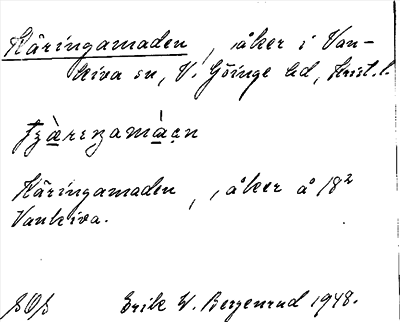 Käringamaden, åker i Van-
kiva sn, V. Göinge hd, Krist. l.
Käringamaden, åker å 18²
Vankiva.
Erik W. Bergenrud 1948.